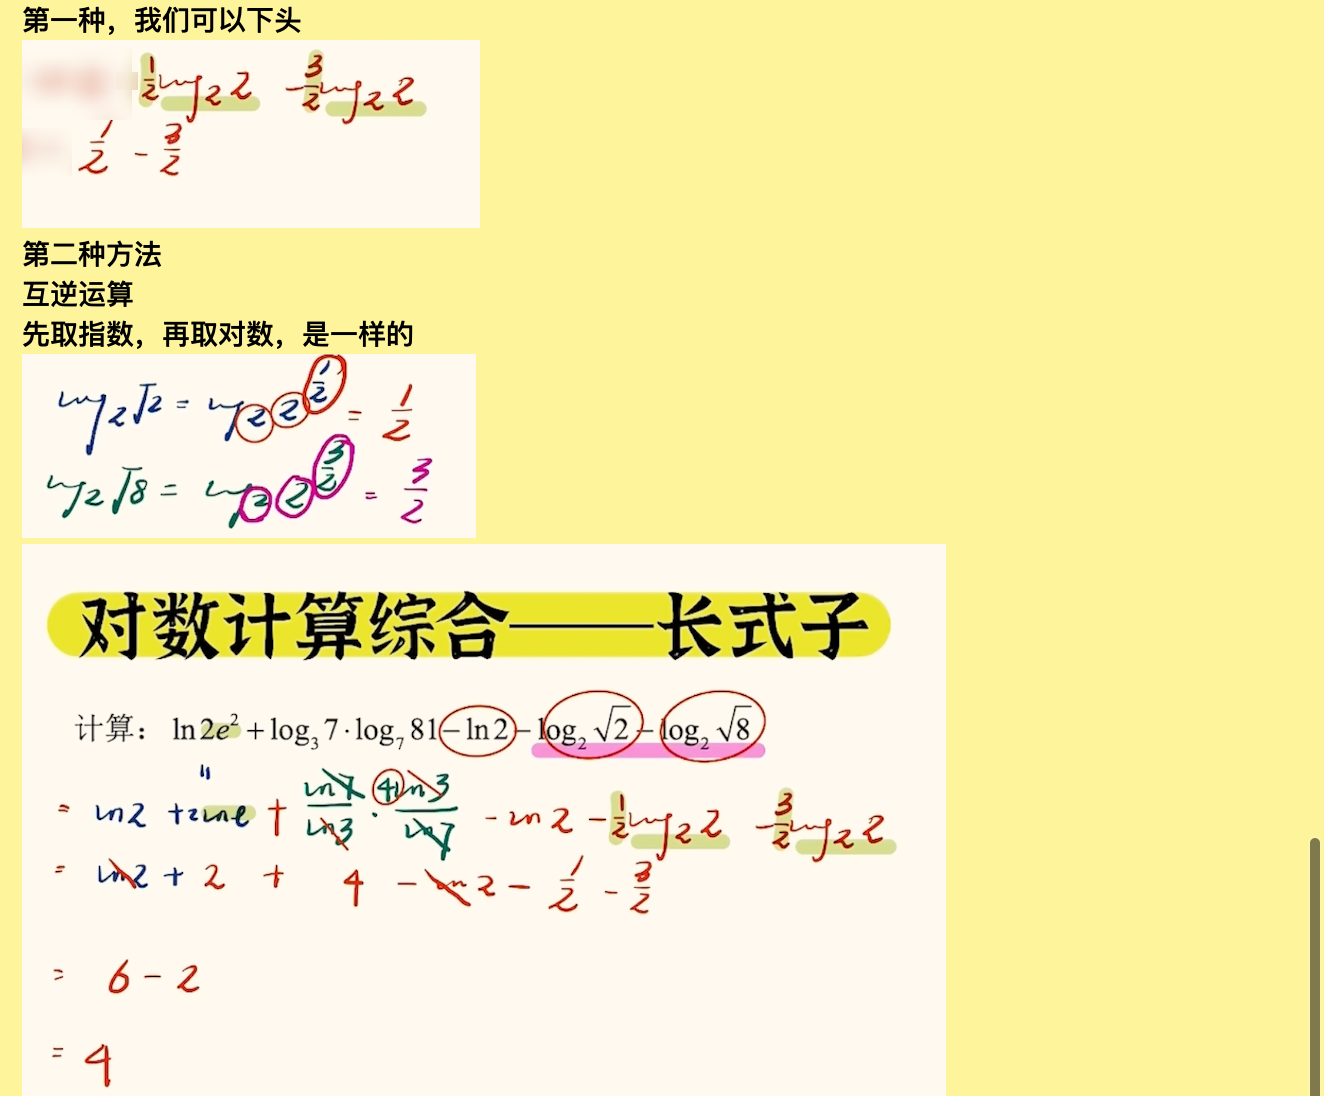 第一种，我们可以下头
½log₂2 -3/2log₂2
1/2 - 3/2
第二种方法
互逆运算
先取指数，再取对数，是一样的
log₂√2 = log₂2^(1/2) = 1/2
log₂√8 = log₂2^(3/2) = 3/2
对数计算综合——长式子
计算： ln2e² + log₃7·log₇81 - ln2 - log₂√2 - log₂√8
= ln2 + 2lne + ln7/ln3 · 4ln3/ln7 - ln2 - 1/2log₂2 - 3/2log₂2
= ln2 + 2 + 4 - ln2 - 1/2 - 3/2
= 6 - 2
= 4